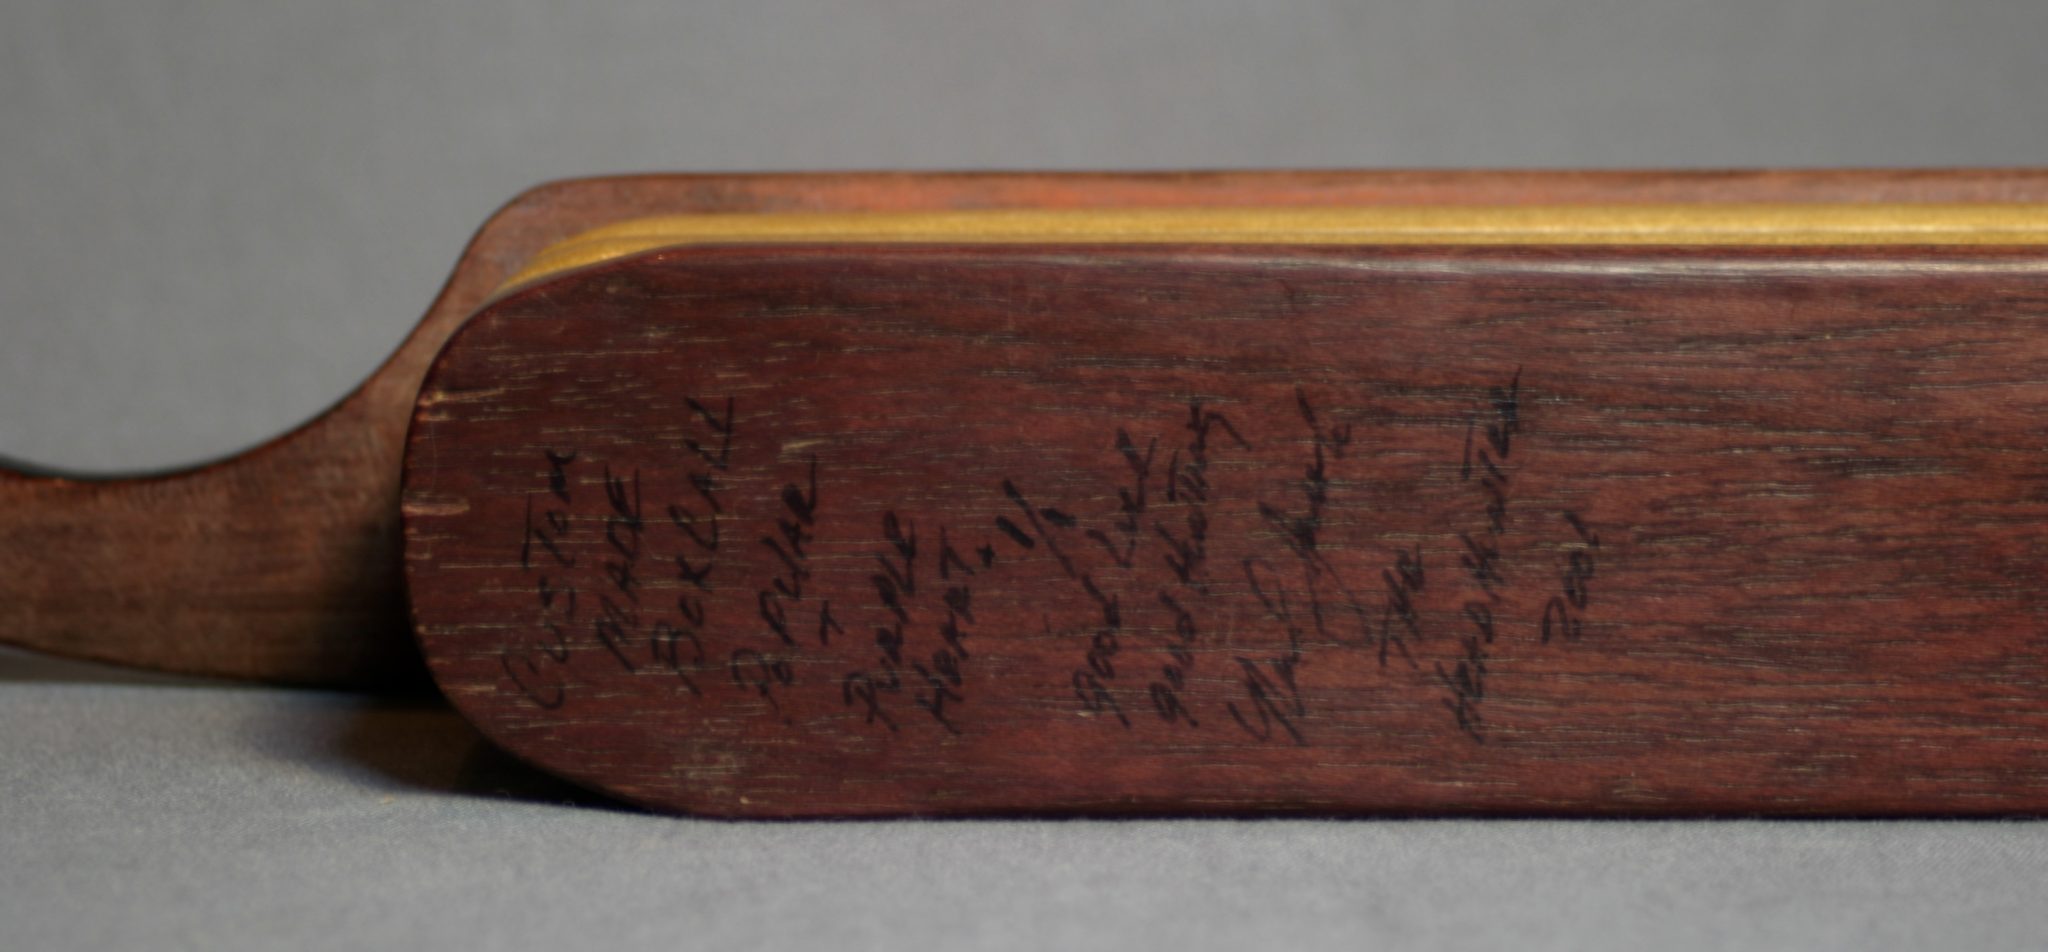 CUSTOM
MADE
BOXCALL
POPULAR
+
PURPLE
HEART. 1/1
Good Luck
good Hunting
THE
HEADHUNTER
2001